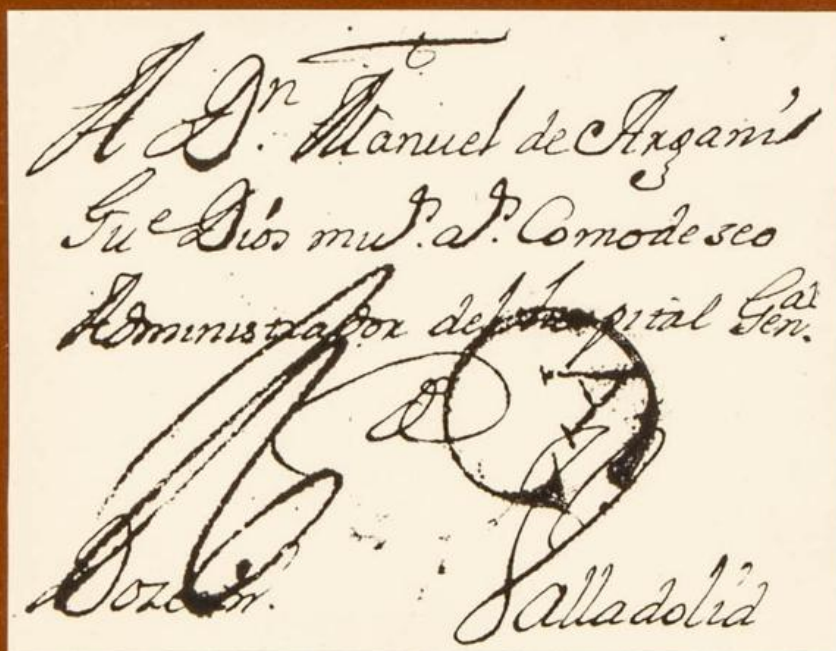 A Dn. Manuel de Arganis
Gue Dios mus. as. Como deseo
Administrador del hospital Genal.
D
Valladolid